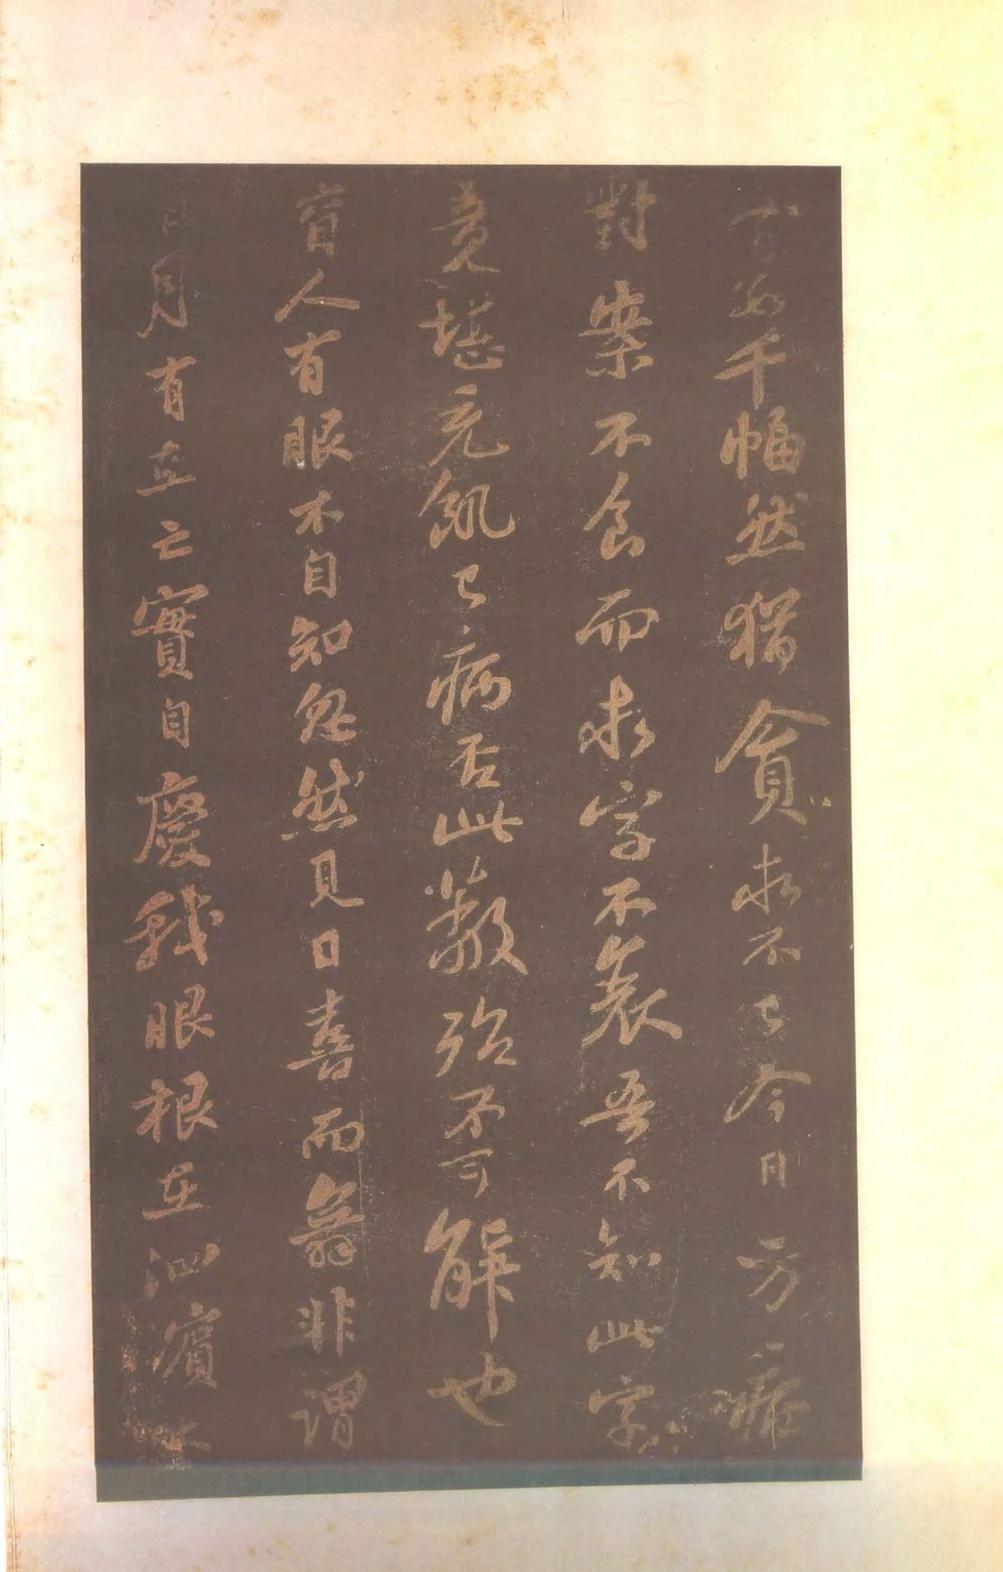 千幅然猶貪求不已今日方
對案不食而求字不衰吾不知此字
竟堪充飢已病否此蔽殆不可解也
盲人有眼不自知忽然見日喜而舞非謂
日月有在亡實自慶我眼根在泗濱